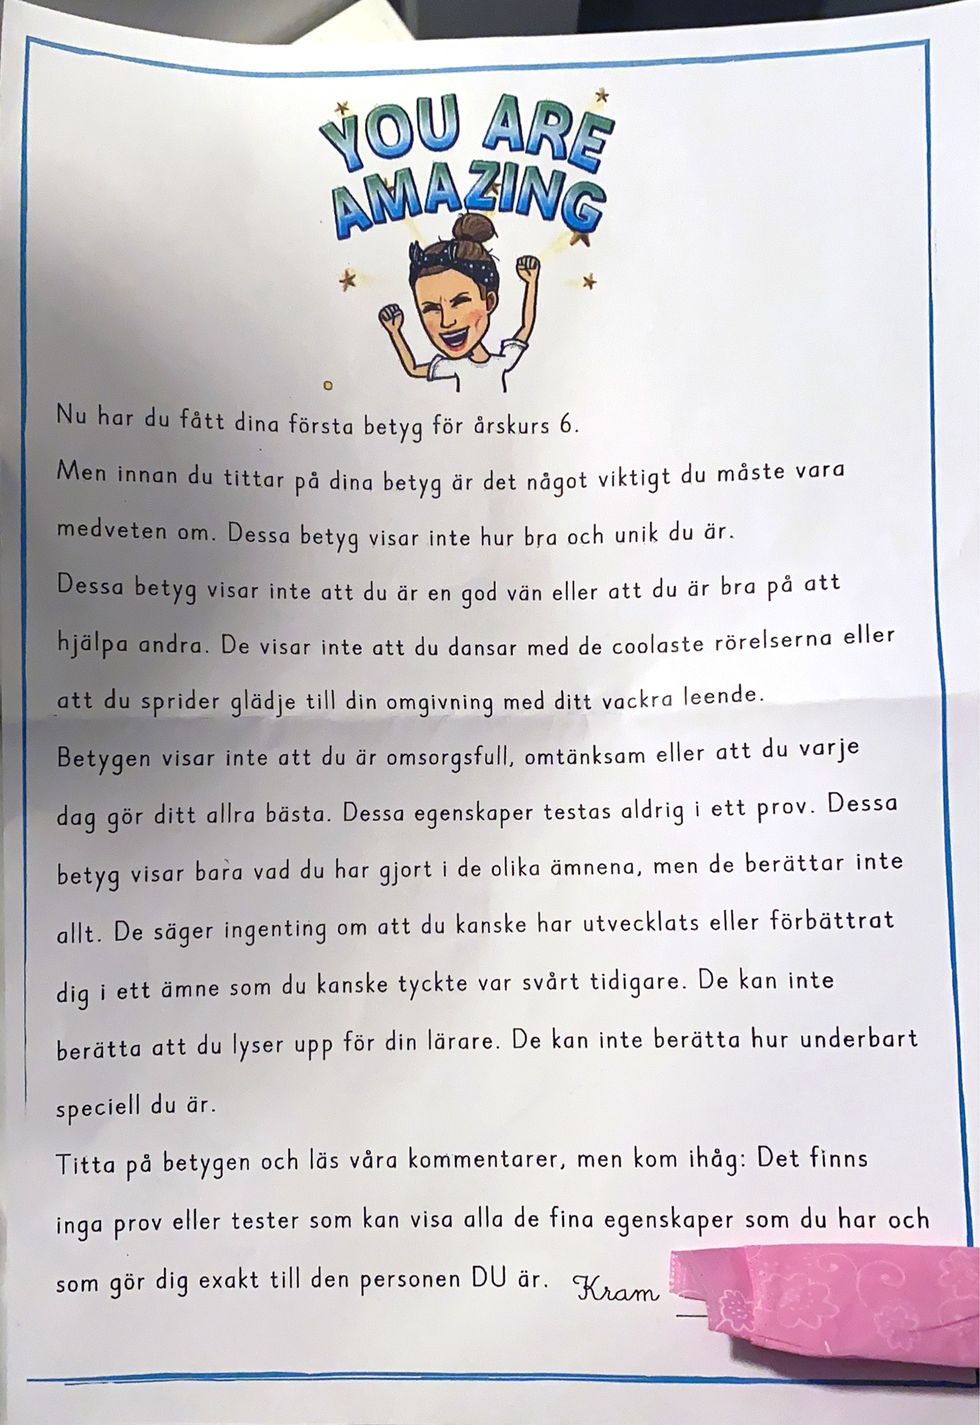 YOU ARE
AMAZING
Nu har du fått dina första betyg för årskurs 6.
Men innan du tittar på dina betyg är det något viktigt du måste vara
medveten om. Dessa betyg visar inte hur bra och unik du är.
Dessa betyg visar inte att du är en god vän eller att du är bra på att
hjälpa andra. De visar inte att du dansar med de coolaste rörelserna eller
att du sprider glädje till din omgivning med ditt vackra leende.
Betygen visar inte att du är omsorgsfull, omtänksam eller att du varje
dag gör ditt allra bästa. Dessa egenskaper testas aldrig i ett prov. Dessa
betyg visar bara vad du har gjort i de olika ämnena, men de berättar inte
allt. De säger ingenting om att du kanske har utvecklats eller förbättrat
dig i ett ämne som du kanske tyckte var svårt tidigare. De kan inte
berätta att du lyser upp för din lärare. De kan inte berätta hur underbart
speciell du är.
Titta på betygen och läs våra kommentarer, men kom ihåg: Det finns
inga prov eller tester som kan visa alla de fina egenskaper som du har och
som gör dig exakt till den personen DU är. Kram